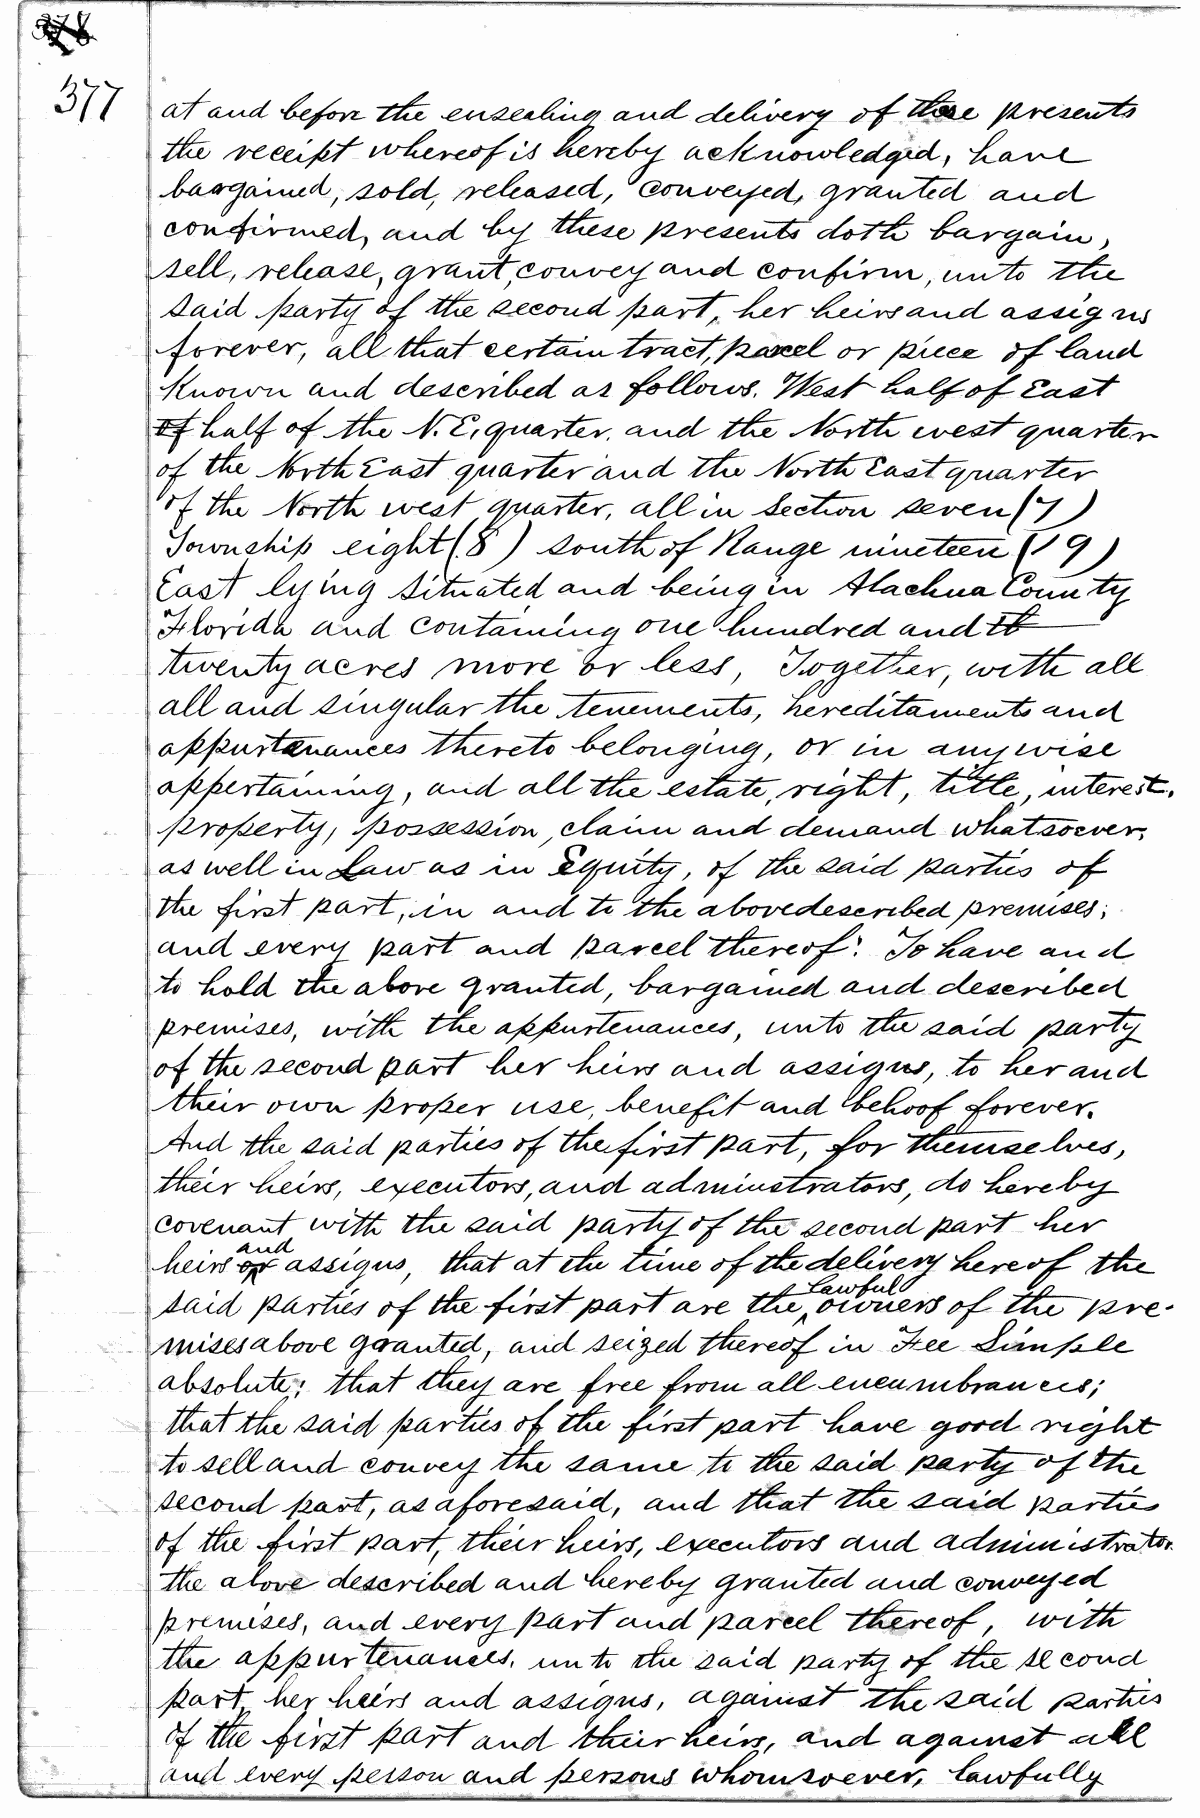 377
at and before the ensealing and delivery of these presents
the receipt whereof is hereby acknowledged, have
bargained, sold, released, conveyed, granted and
confirmed, and by these presents doth bargain,
sell, release, grant, convey and confirm, unto the
said party of the second part, her heirs and assigns
forever, all that certain tract, parcel or piece of land
Known and described as follows. West half of East
of half of the N.E. quarter. and the North west quarter
of the North East quarter and the North East quarter
of the North west quarter, all in section seven (7)
Township eight (8) south of Range nineteen (19)
East lying situated and being in Alachua County
Florida and containing one hundred and
twenty acres more or less, Together, with all
all and singular the tenements, hereditaments and
appurtenances thereto belonging, or in any wise
appertaining, and all the estate, right, title, interest.
property, possession, claim and demand whatsoever,
as well in Law as in Equity, of the said parties of
the first part, in and to the above described premises;
and every part and parcel thereof: To have and
to hold the above granted, bargained and described
premises, with the appurtenances, unto the said party
of the second part her heirs and assigns, to her and
their own proper use, benefit and behoof forever.
And the said parties of the first part, for themselves,
their heirs, executors, and adminstrators, do hereby
covenant with the said party of the second part her
heirs or and assigns, that at the time of the delivery hereof the
said parties of the first part are the lawful owners of the pre-
mises above granted, and seized thereof in Fee Simple
absolute; that they are free from all encumbrances;
that the said parties of the first part have good right
to sell and convey the same to the said party of the
second part, as aforesaid, and that the said parties
of the first part, their heirs, executors and administrator
the above described and hereby granted and conveyed
premises, and every part and parcel thereof, with
the appurtenances. unto the said party of the second
part, her heirs and assigns, against the said parties
of the first part and their heirs, and against all
and every person and persons whomsoever, lawfully